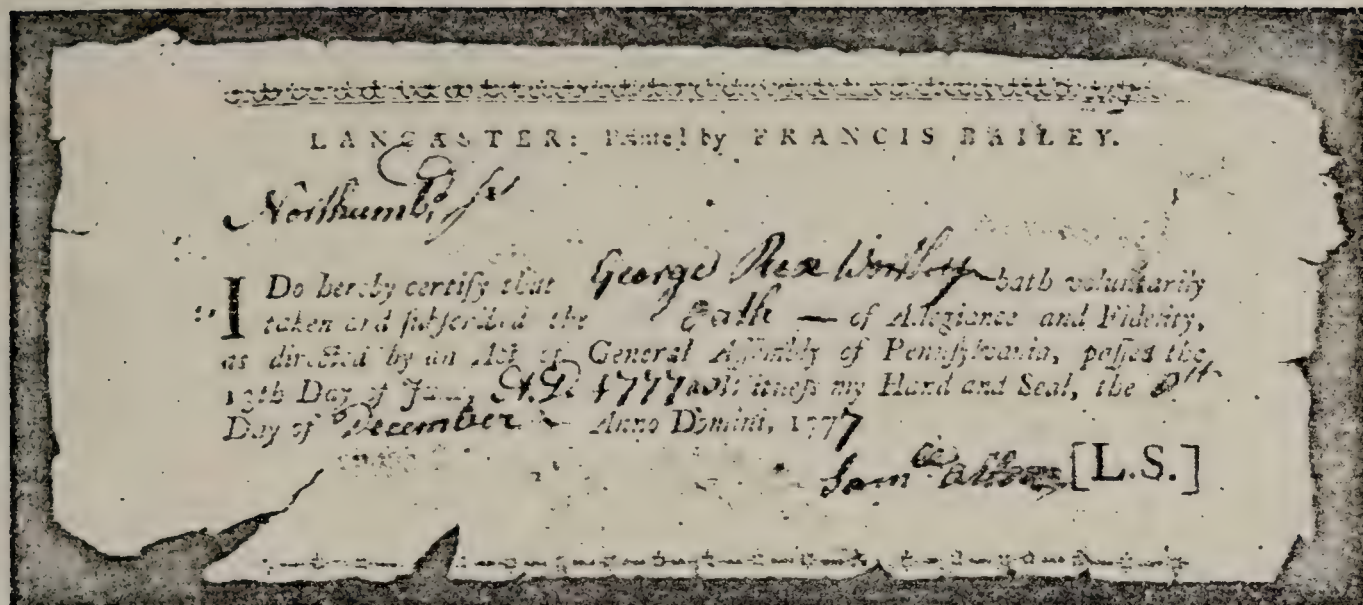 LANCASTER: Printed by FRANCIS BAILEY.
Northumb. ss
I Do hereby certify that George Rex hath voluntarily
taken and ſubſcribed the Oath — of Allegiance and Fidelity,
as directed by an Act of General Aſſembly of Pennſylvania, paſſed the
13th Day of June, A.D. 1777 Witneſs my Hand and Seal, the
Day of December — Anno Domini, 1777
Saml [L.S.]